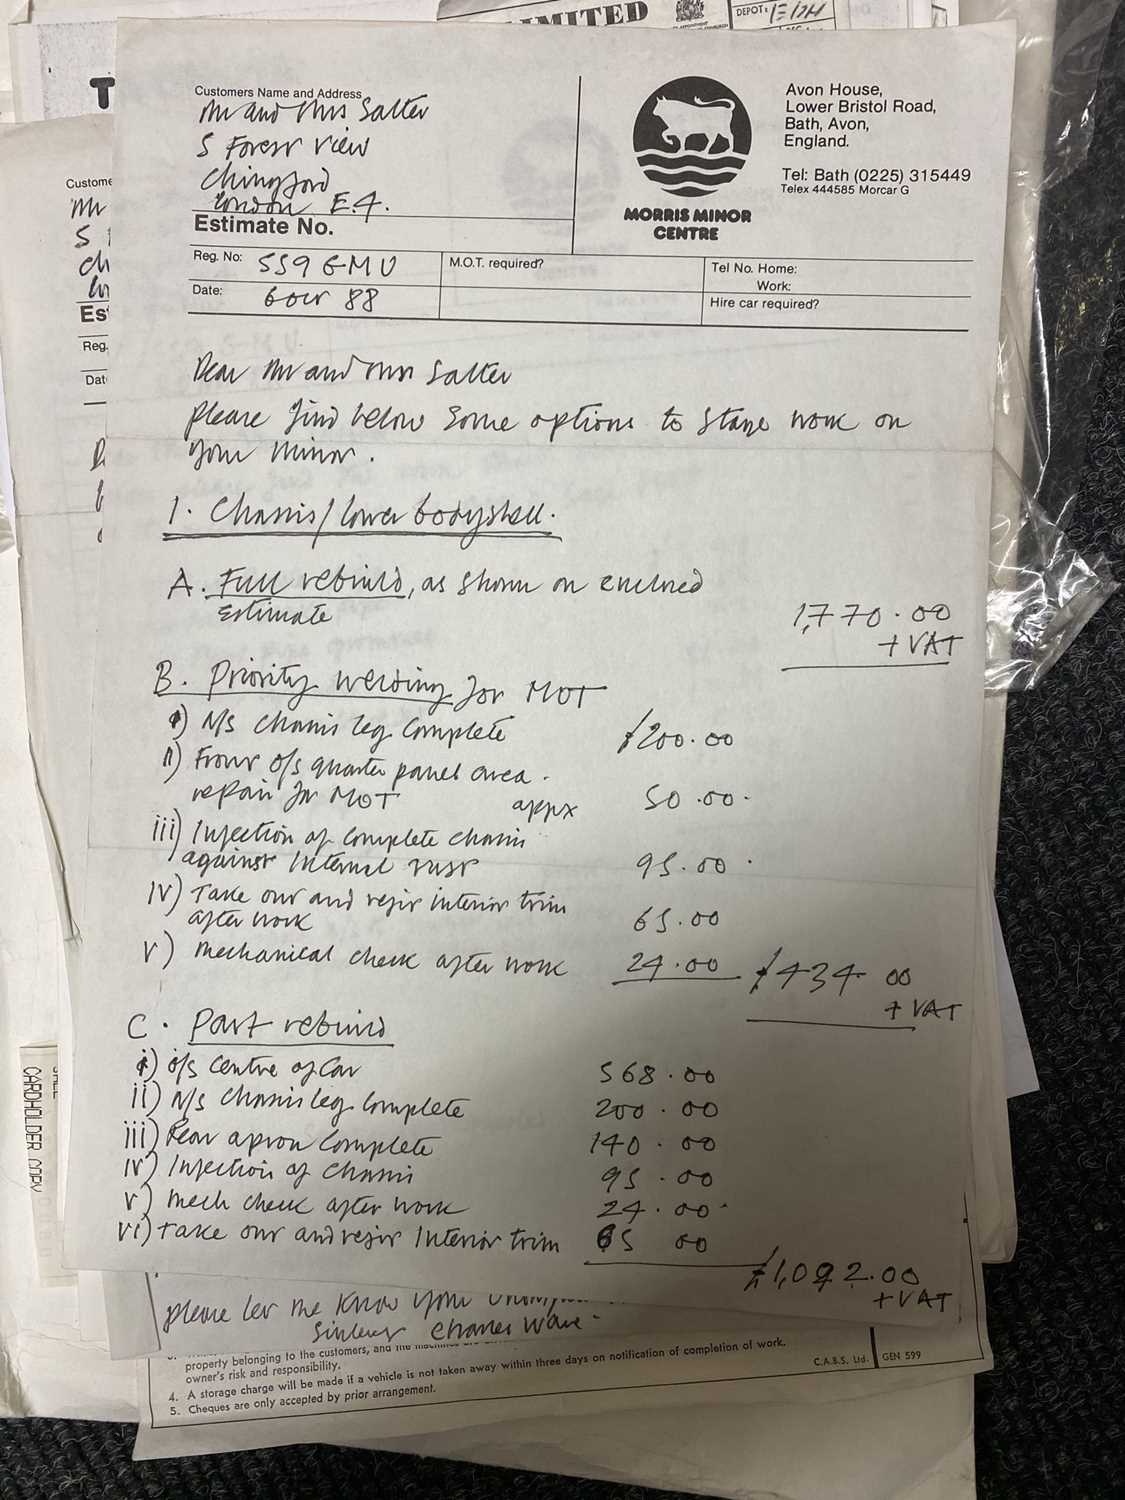 LIMITED
DEPOT: E/24
Customers Name and Address
Mr and Mrs Salter
5 Forest View
Chingford
London E.4.
Estimate No.
MORRIS MINOR
CENTRE
Avon House,
Lower Bristol Road,
Bath, Avon,
England.
Tel: Bath (0225) 315449
Telex 444585 Morcar G
Reg. No: 559 GMU
M.O.T. required?
Tel No. Home:
Work:
Date: 6 Oct 88
Hire car required?
Dear Mr and Mrs Salter
please find below some options to stage work on
your Minor.
1. Chassis/lower bodyshell.
A. Full rebuild, as shown on enclosed
estimate
1,770.00
+ VAT
B. Priority welding for MOT
i) N/S chassis leg complete £200.00
ii) Front o/s quarter panel area.
repair for MOT appx 50.00.
iii) Injection of complete chassis
against internal rust 95.00.
iv) Take out and refix interior trim
after work 65.00
v) Mechanical check after work 24.00 £434.00
+ VAT
C. Part rebuild
i) o/s centre of car 568.00
ii) N/S chassis leg complete 200.00
iii) Rear apron complete 140.00
iv) Injection of chassis 95.00
v) mech check after work 24.00
vi) Take out and refix Interior trim 65 00
£1,092.00
+ VAT
please let me know your
Sincerely Charles Ware.
property belonging to the customers, and the machines are
owner's risk and responsibility.
4. A storage charge will be made if a vehicle is not taken away within three days on notification of completion of work.
5. Cheques are only accepted by prior arrangement.
C.A.B.S. Ltd. GEN 599
CARDHOLDER COPY